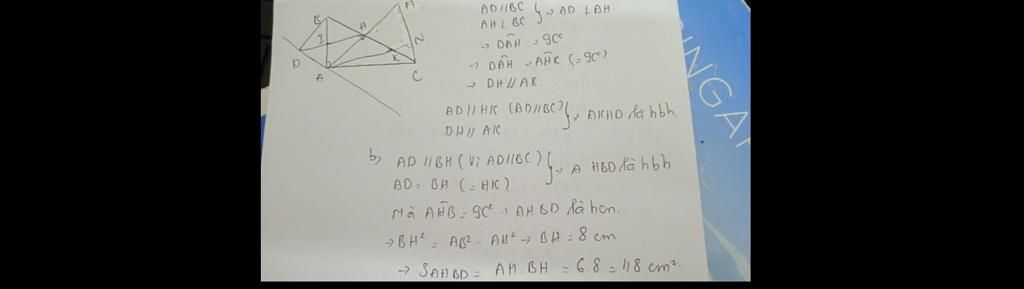 B
H
M
I
N
D
K
A
C
AD//BC
AH⊥BC } → AD ⊥ AH
→ DAH = 90°
→ DAH = AHK (= 90°)
→ DH // AK.
AD // HK (AD//BC)
DH // AK } → AKHD là hbh.
b) AD // BH (Vì AD//BC)
AD = BH (= HK) } → A HBD là hbh
Mà AHB = 90° → AHBD là hcn.
→ BH² = AB² - AH² → BH = 8 cm
→ SAHBD = AH.BH = 6.8 = 48 cm².
INGAP